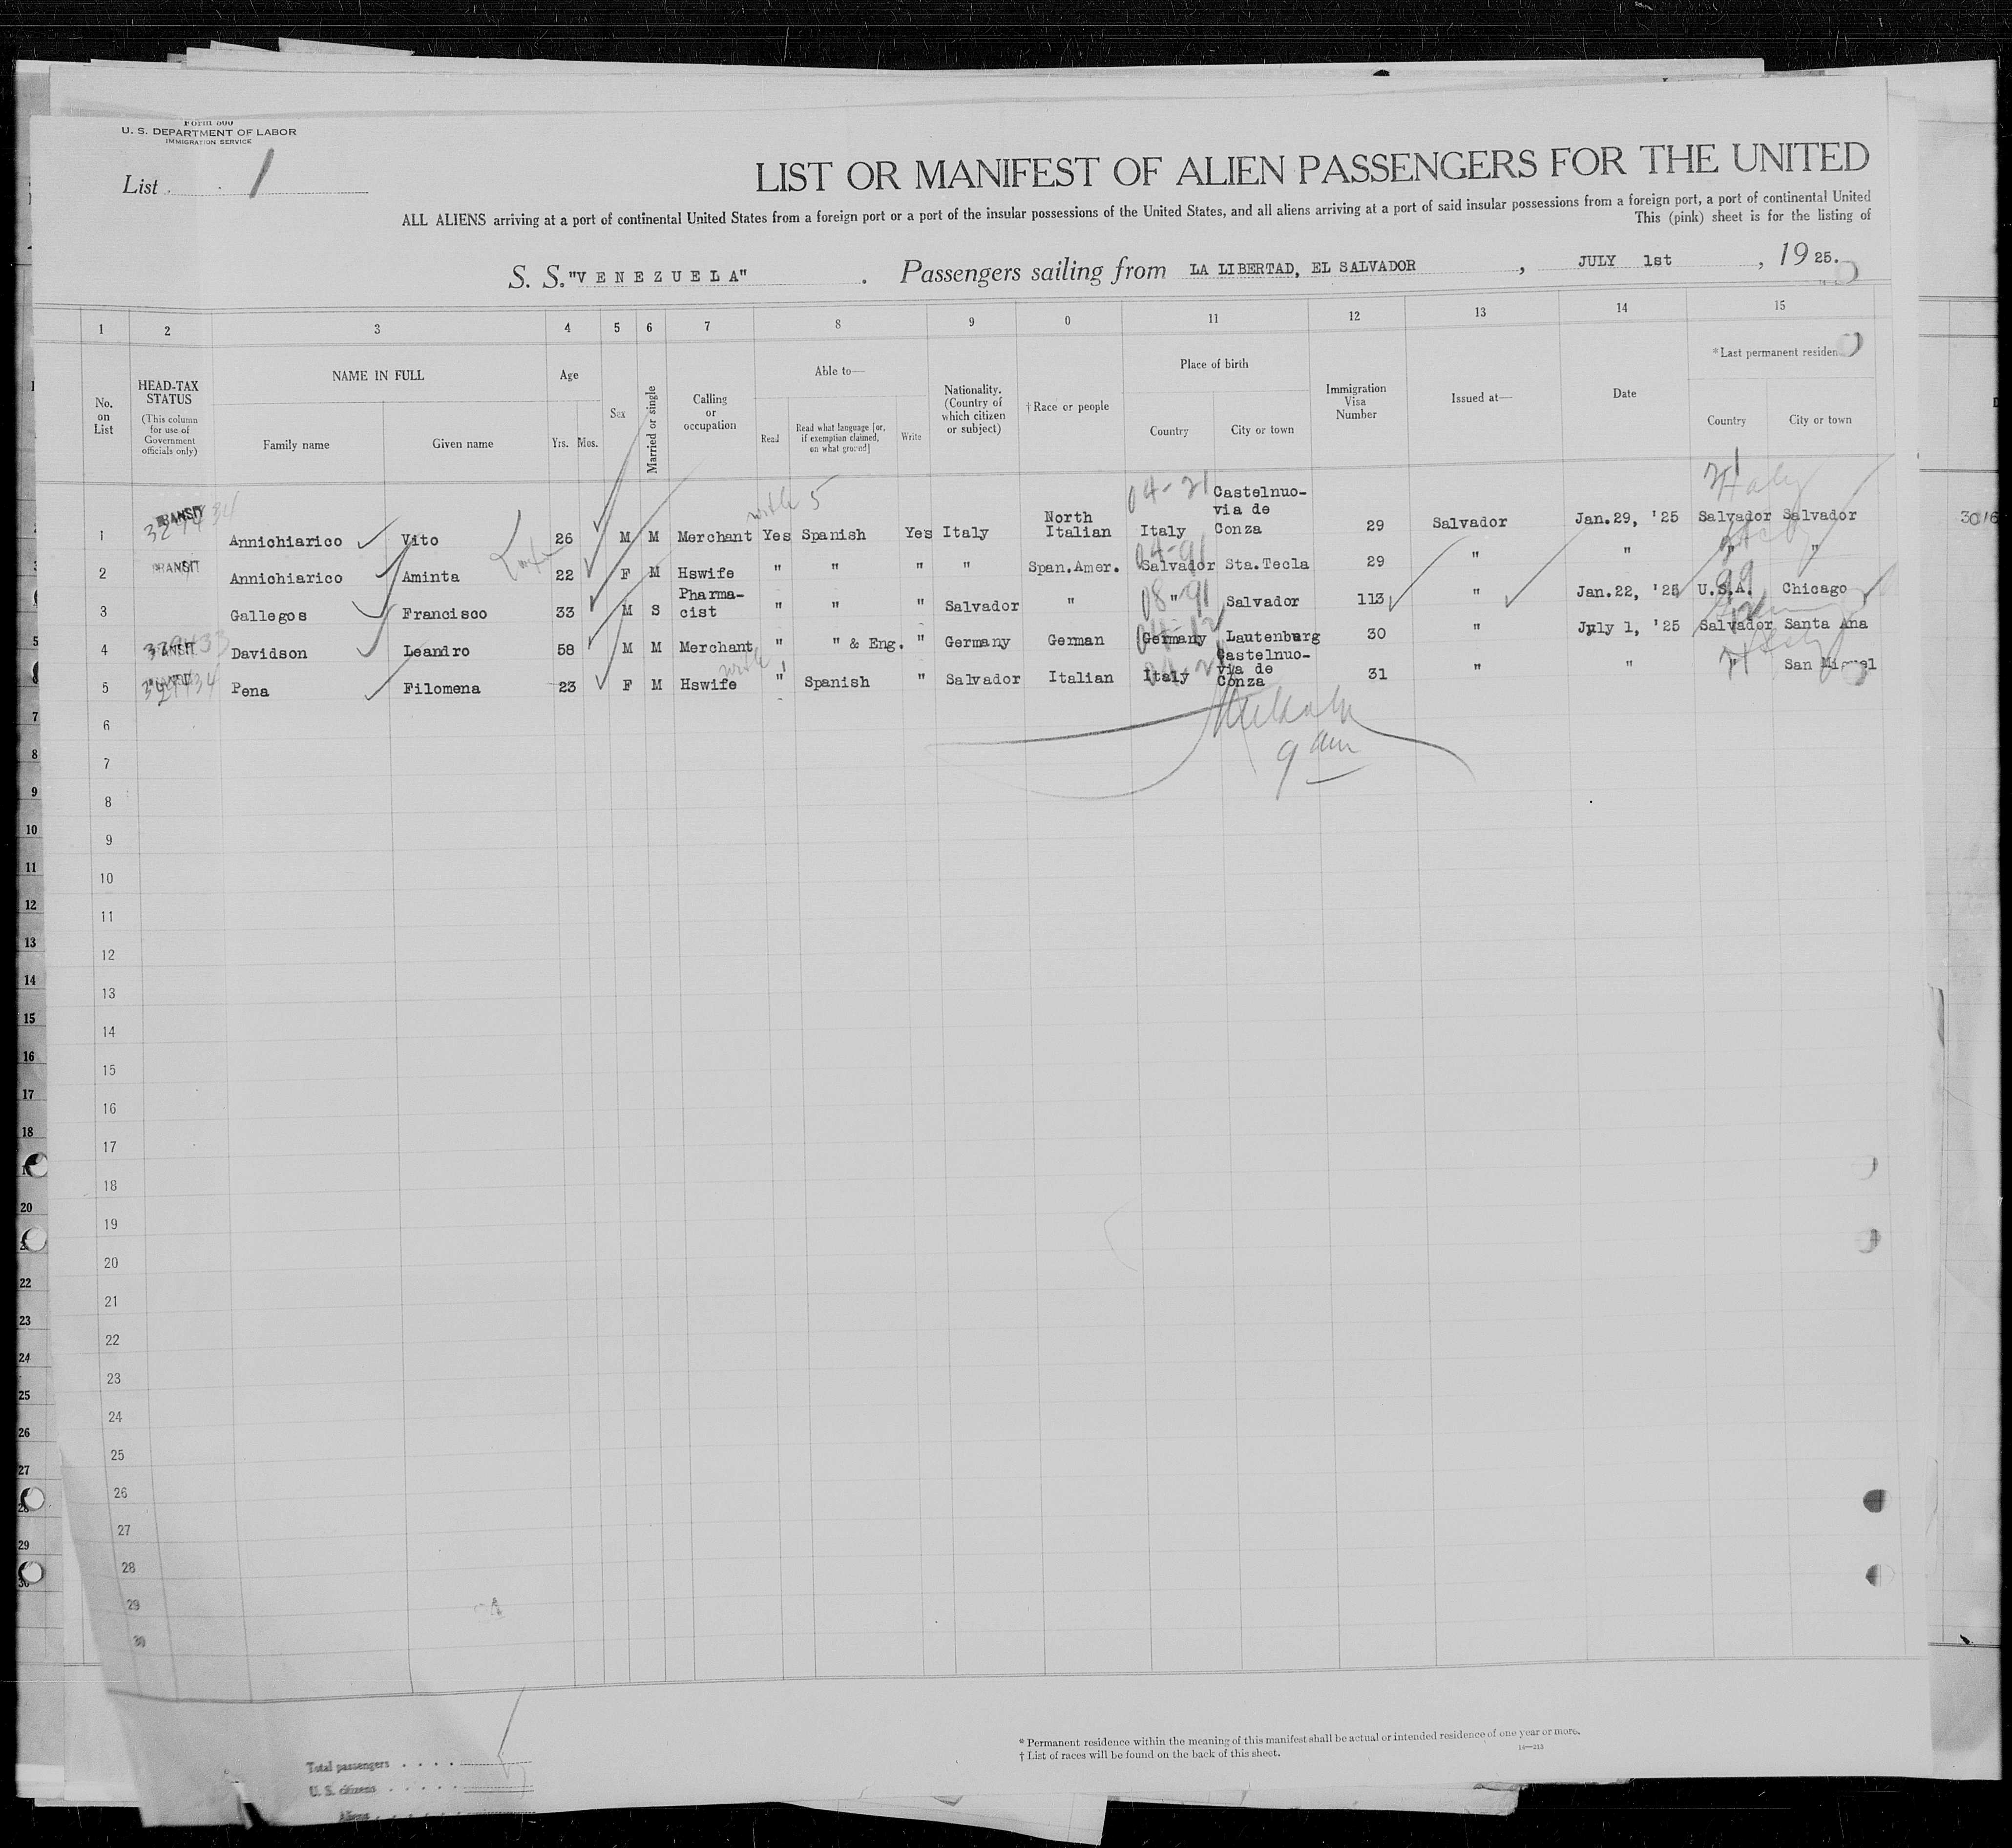 Form 500
U. S. DEPARTMENT OF LABOR
IMMIGRATION SERVICE
List 1
LIST OR MANIFEST OF ALIEN PASSENGERS FOR THE UNITED
ALL ALIENS arriving at a port of continental United States from a foreign port or a port of the insular possessions of the United States, and all aliens arriving at a port of said insular possessions from a foreign port, a port of continental United
This (pink) sheet is for the listing of
S. S. "VENEZUELA" . Passengers sailing from LA LIBERTAD, EL SALVADOR , JULY 1st , 1925.
1 2 3 4 5 6 7 8 9 0 11 12 13 14 15
No. on List
HEAD-TAX STATUS (This column for use of Government officials only)
NAME IN FULL
Family name Given name
Age
Yrs. Mos.
Sex
Married or single
Calling or occupation
Able to—
Read Read what language [or, if exemption claimed, on what ground] Write
Nationality. (Country of which citizen or subject)
† Race or people
Place of birth
Country City or town
Immigration Visa Number
Issued at—
Date
* Last permanent residen
Country City or town
1 TRANSIT Annichiarico Vito 26 M M Merchant Yes Spanish Yes Italy North Italian 04-21 Italy Castelnuo-via de Conza 29 Salvador Jan.29, '25 Italy Salvador Salvador 3016
2 TRANSIT Annichiarico Aminta 22 F M Hswife " " " " Span.Amer. 04-91 Salvador Sta.Tecla 29 " " " "
3 Gallegos Francisco 33 M S Pharma-cist " " " Salvador " 08-91 " Salvador 113 " Jan.22, '25 99 U.S.A. Chicago
4 329433 TRANSIT Davidson Leandro 58 M M Merchant " " & Eng. " Germany German Germany Lautenburg 30 " July 1, '25 Salvador Santa Ana
5 Pena Filomena 23 F M Hswife " Spanish " Salvador Italian Italy Castelnuo-via de Conza 31 " " " San Miguel
6
9 am
7
8
9
10
11
12
13
14
15
16
17
18
19
20
21
22
23
24
25
26
27
28
29
30
* Permanent residence within the meaning of this manifest shall be actual or intended residence of one year or more.
† List of races will be found on the back of this sheet.
14—213
Total passengers . . . .
U. S. citizens . . . . . .
Aliens